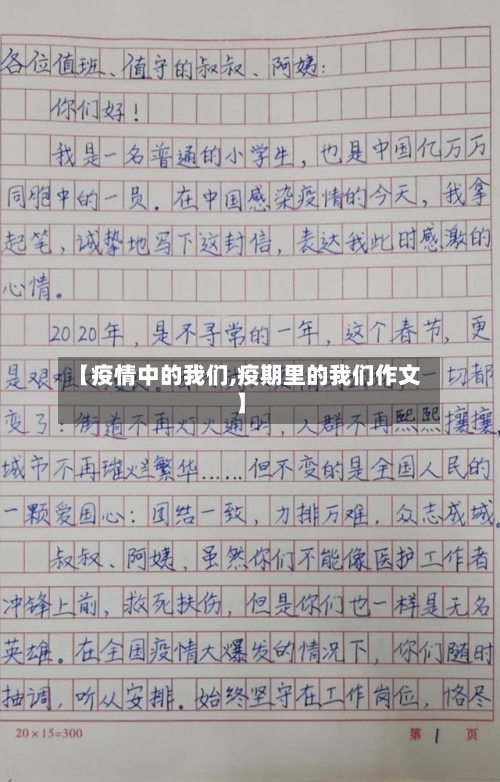 各位值班、值守的叔叔、阿姨:
你们好!
我是一名普通的小学生,也是中国亿万万
同胞中的一员。在中国感染疫情的今天,我拿
起笔,诚挚地写下这封信,表达我此时感激的
心情。
2020年,是不寻常的一年,这个春节,更
是艰难
【疫情中的我们,疫期里的我们作文
】
一切都
变了:街道不再灯火通明,人群不再熙熙攘攘,
城市不再璀烂繁华......但不变的是全国人民的
一颗爱国心:团结一致,力排万难,众志成城。
叔叔、阿姨,虽然你们不能像医护工作者
冲锋上前,救死扶伤,但是你们也一样是无名
英雄。在全国疫情大爆发的情况下,你们随时
抽调,听从安排。始终坚守在工作岗位,恪尽
20×15=300
第 1 页